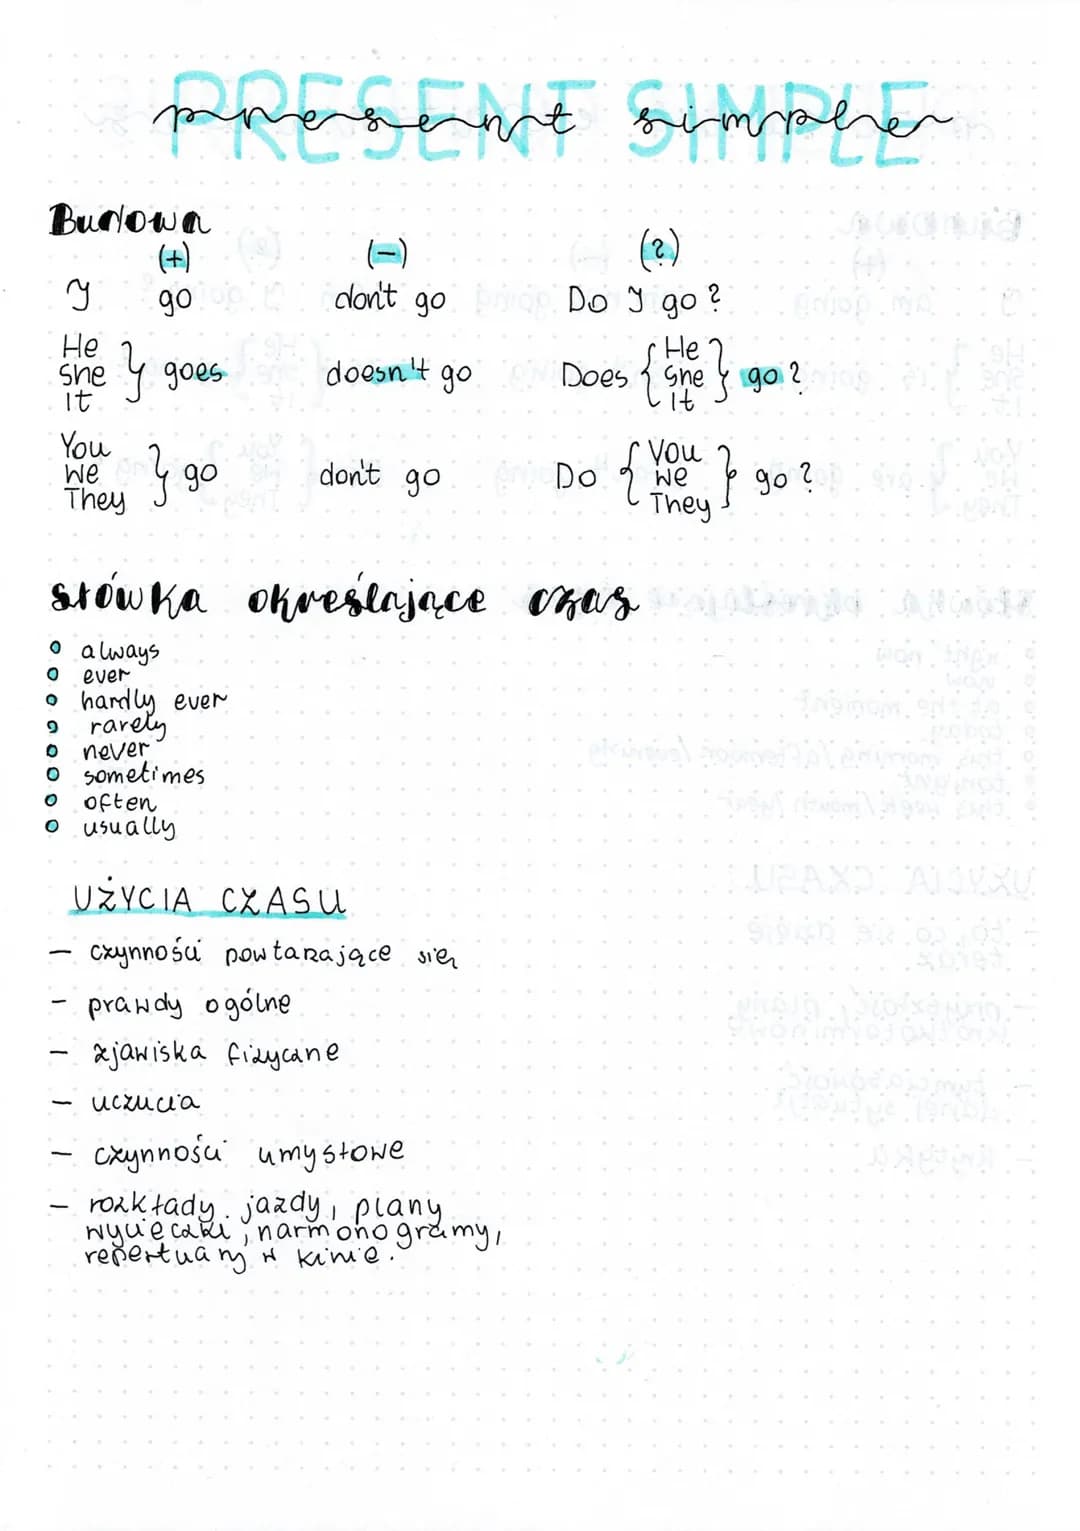 PRESENT SIMPLE
present simple
Budowa
(+) (-) (?)
I go don't go Do I go?
He
She
It } goes doesn't go Does { He
She
It } go?
You
We
They } go don't go Do { You
We
They } go?
słówka określające czas
always
ever
hardly ever
rarely
never
sometimes
often
usually
UŻYCIA CZASU
- czynności powtarzające się
- prawdy ogólne
- zjawiska fizyczne
- uczucia
- czynności umysłowe
- rozkłady jazdy, plany
wycieczki, harmonogramy,
repertuary w kinie.